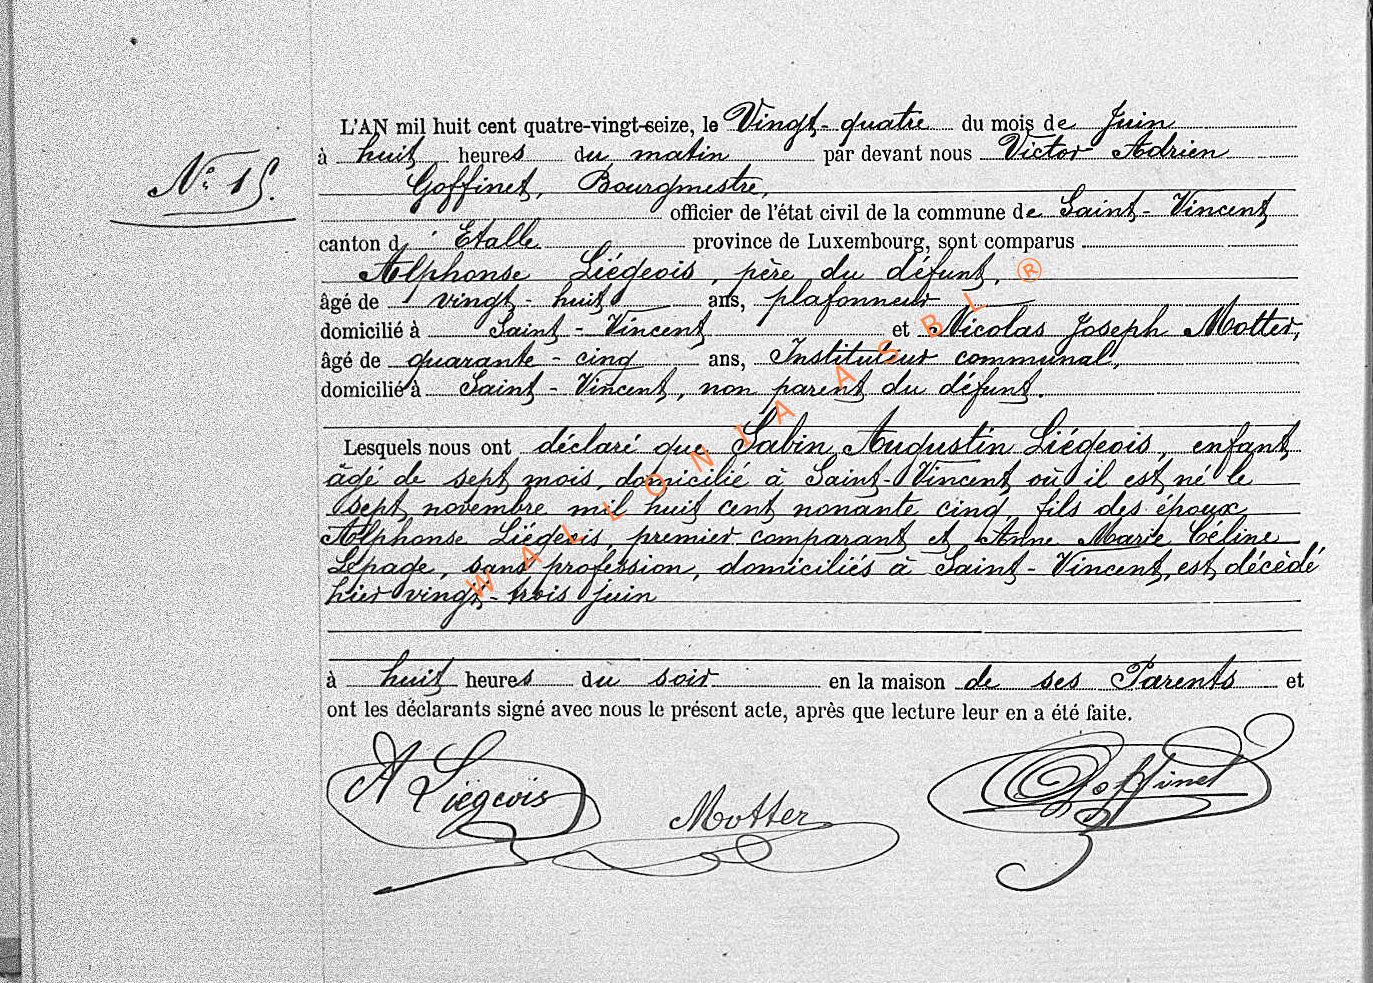 L'AN mil huit cent quatre-vingt-seize, le Vingt-quatre du mois de Juin
N° 15. à huit heures du matin par devant nous Victor Adrien
Goffinet, Bourgmestre,
officier de l'état civil de la commune de Saint-Vincent
canton d' Etalle province de Luxembourg, sont comparus
Alphonse Liégeois, père du défunt,
âgé de vingt-huit ans, plafonneur
domicilié à Saint-Vincent et Nicolas Joseph Motter,
âgé de quarante-cinq ans, Instituteur communal,
domicilié à Saint-Vincent, non parent du défunt.
Lesquels nous ont déclaré que Sabin Augustin Liégeois, enfant
âgé de sept mois, domicilié à Saint-Vincent où il est né le
sept novembre mil huit cent nonante cinq, fils des époux
Alphonse Liégeois, premier comparant et Anne Marie Céline
Lepage, sans profession, domiciliés à Saint-Vincent, est décèdé
hier vingt-trois juin
à huit heures du soir en la maison de ses Parents et
ont les déclarants signé avec nous le présent acte, après que lecture leur en a été faite.
A Liégeois Motter Goffinet
WALLONIA ASBL ®